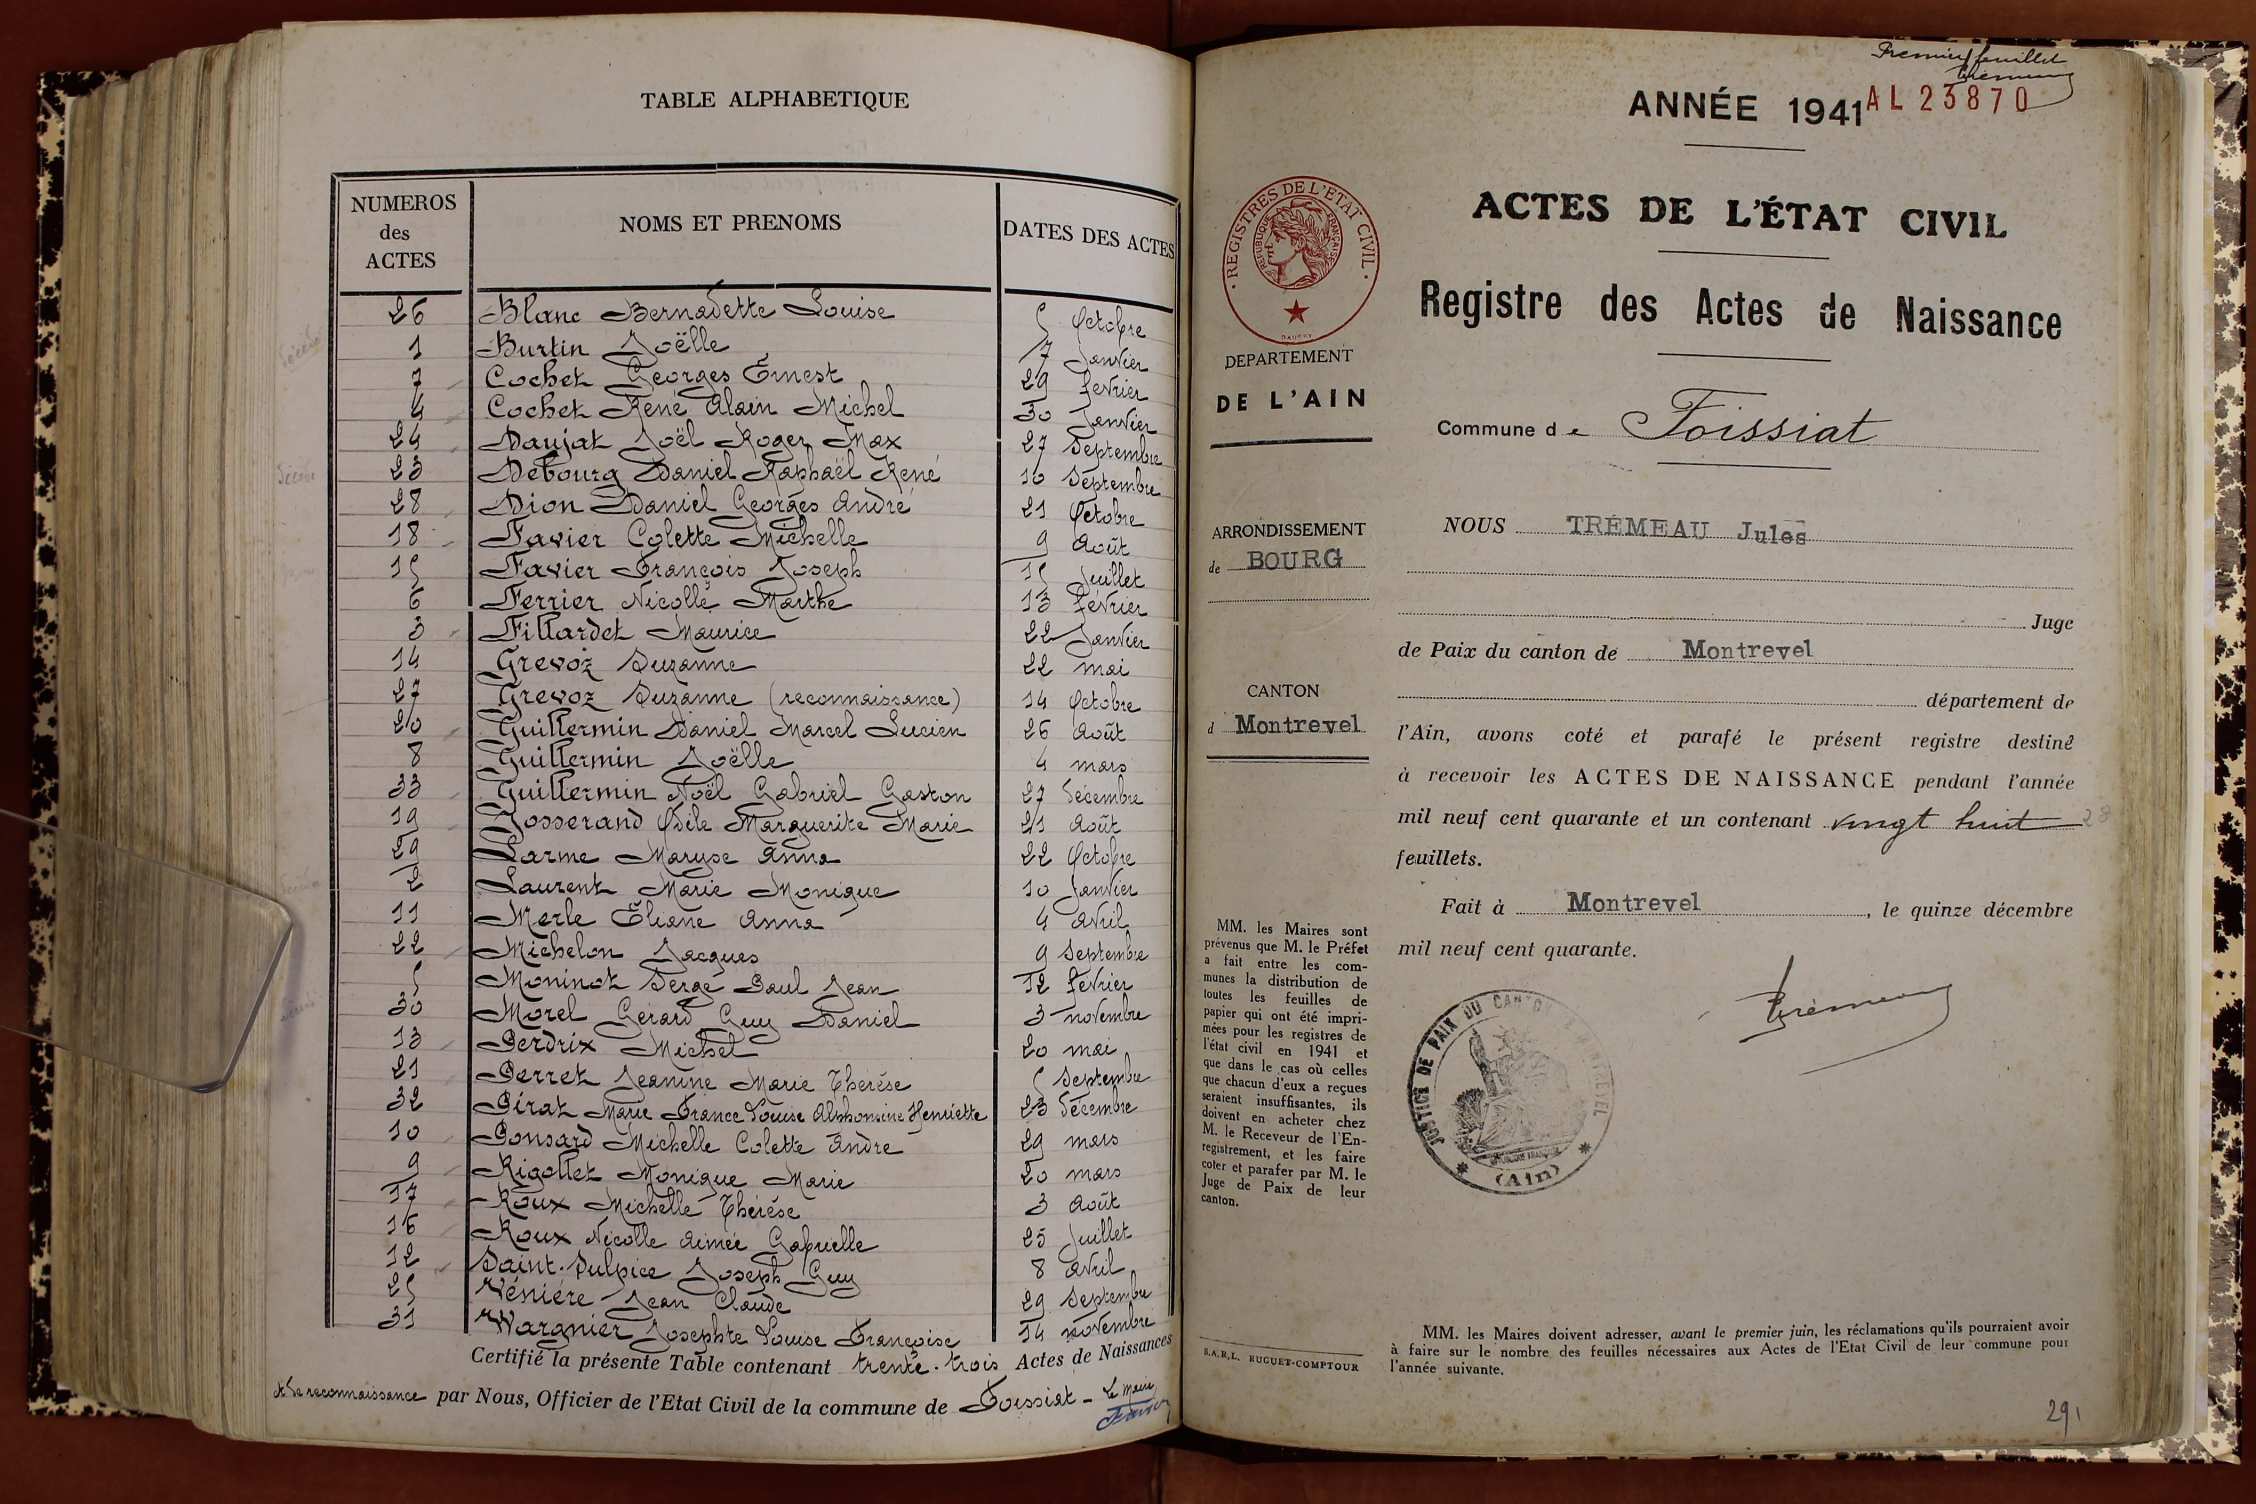 TABLE ALPHABETIQUE
NUMEROS des ACTES
NOMS ET PRENOMS
DATES DES ACTES
26 Blanc Bernadette Louise 5 Octobre
1 Burtin Joëlle 7 Janvier
7 Cochet Georges Ernest 29 fevrier
4 Cochet René Alain Michel 30 Janvier
24 Daujat Joël Roger Max 27 Septembre
23 Debourg Daniel Raphaël René 16 Septembre
28 Dion Daniel Georges André 21 Octobre
18 Favier Colette Michelle 9 Août
15 Favier François Joseph 15 Juillet
6 Ferrier Nicolle Marthe 13 février
3 Fillardet Maurice 22 Janvier
14 Grevoz Suzanne 22 mai
27 Grevoz Suzanne (reconnaissance) 14 Octobre
20 Guillermin Daniel Marcel Lucien 26 Août
8 Guillermin Joëlle 4 mars
33 Guillermin Noël Gabriel Gaston 27 décembre
19 Josserand Odile Marguerite Marie 21 Août
29 Larme Maryse Anna 22 Octobre
2 Laurent Marie Monique 10 Janvier
11 Merle Éliane Anna 4 avril
22 Michelon Jacques 9 Septembre
5 Moninot Serge Paul Jean 12 février
30 Morel Gérard Guy Daniel 3 novembre
13 Perdrix Michel 20 mai
21 Perret Jeanine Marie Thérèse 5 Septembre
32 Pirat Marie France Louise Alphonsine Henriette 23 décembre
10 Ponsard Michelle Colette André 29 mars
9 Rigollet Monique Marie 20 mars
17 Roux Michelle Thérèse 3 Août
16 Roux Nicolle Aimée Gabrielle 25 Juillet
12 Saint-Sulpice Joseph Guy 8 avril
25 Vénière Jean Claude 29 Septembre
31 Wargnier Josephte Louise Françoise 14 novembre
Certifié la présente Table contenant trente-trois Actes de Naissances
reconnaissance par Nous, Officier de l'Etat Civil de la commune de Foissiat - Le Maire
Premier feuillet
ANNÉE 1941 AL 23870
ACTES DE L'ÉTAT CIVIL
Registre des Actes de Naissance
Commune de Foissiat
· REGISTRES DE L'ETAT CIVIL ·
REPUBLIQUE FRANÇAISE
DEPARTEMENT
DE L'AIN
ARRONDISSEMENT
de BOURG
CANTON
d Montrevel
MM. les Maires sont
prévenus que M. le Préfet
a fait entre les com-
munes la distribution de
toutes les feuilles de
papier qui ont été impri-
mées pour les registres de
l'état civil en 1941 et
que dans le cas où celles
que chacun d'eux a reçues
seraient insuffisantes, ils
doivent en acheter chez
M. le Receveur de l'En-
registrement, et les faire
coter et parafer par M. le
Juge de Paix de leur
canton.
S.A.R.L. HUGUET-COMPTOUR
NOUS TRÉMEAU Jules
Juge
de Paix du canton de Montrevel
département de
l'Ain, avons coté et parafé le présent registre destiné
à recevoir les ACTES DE NAISSANCE pendant l'année
mil neuf cent quarante et un contenant vingt huit 28
feuillets.
Fait à Montrevel, le quinze décembre
mil neuf cent quarante.
Trémeau
JUSTICE DE PAIX DU CANTON DE MONTREVEL
(Ain)
MM. les Maires doivent adresser, avant le premier juin, les réclamations qu'ils pourraient avoir
à faire sur le nombre des feuilles nécessaires aux Actes de l'Etat Civil de leur commune pour
l'année suivante.
29